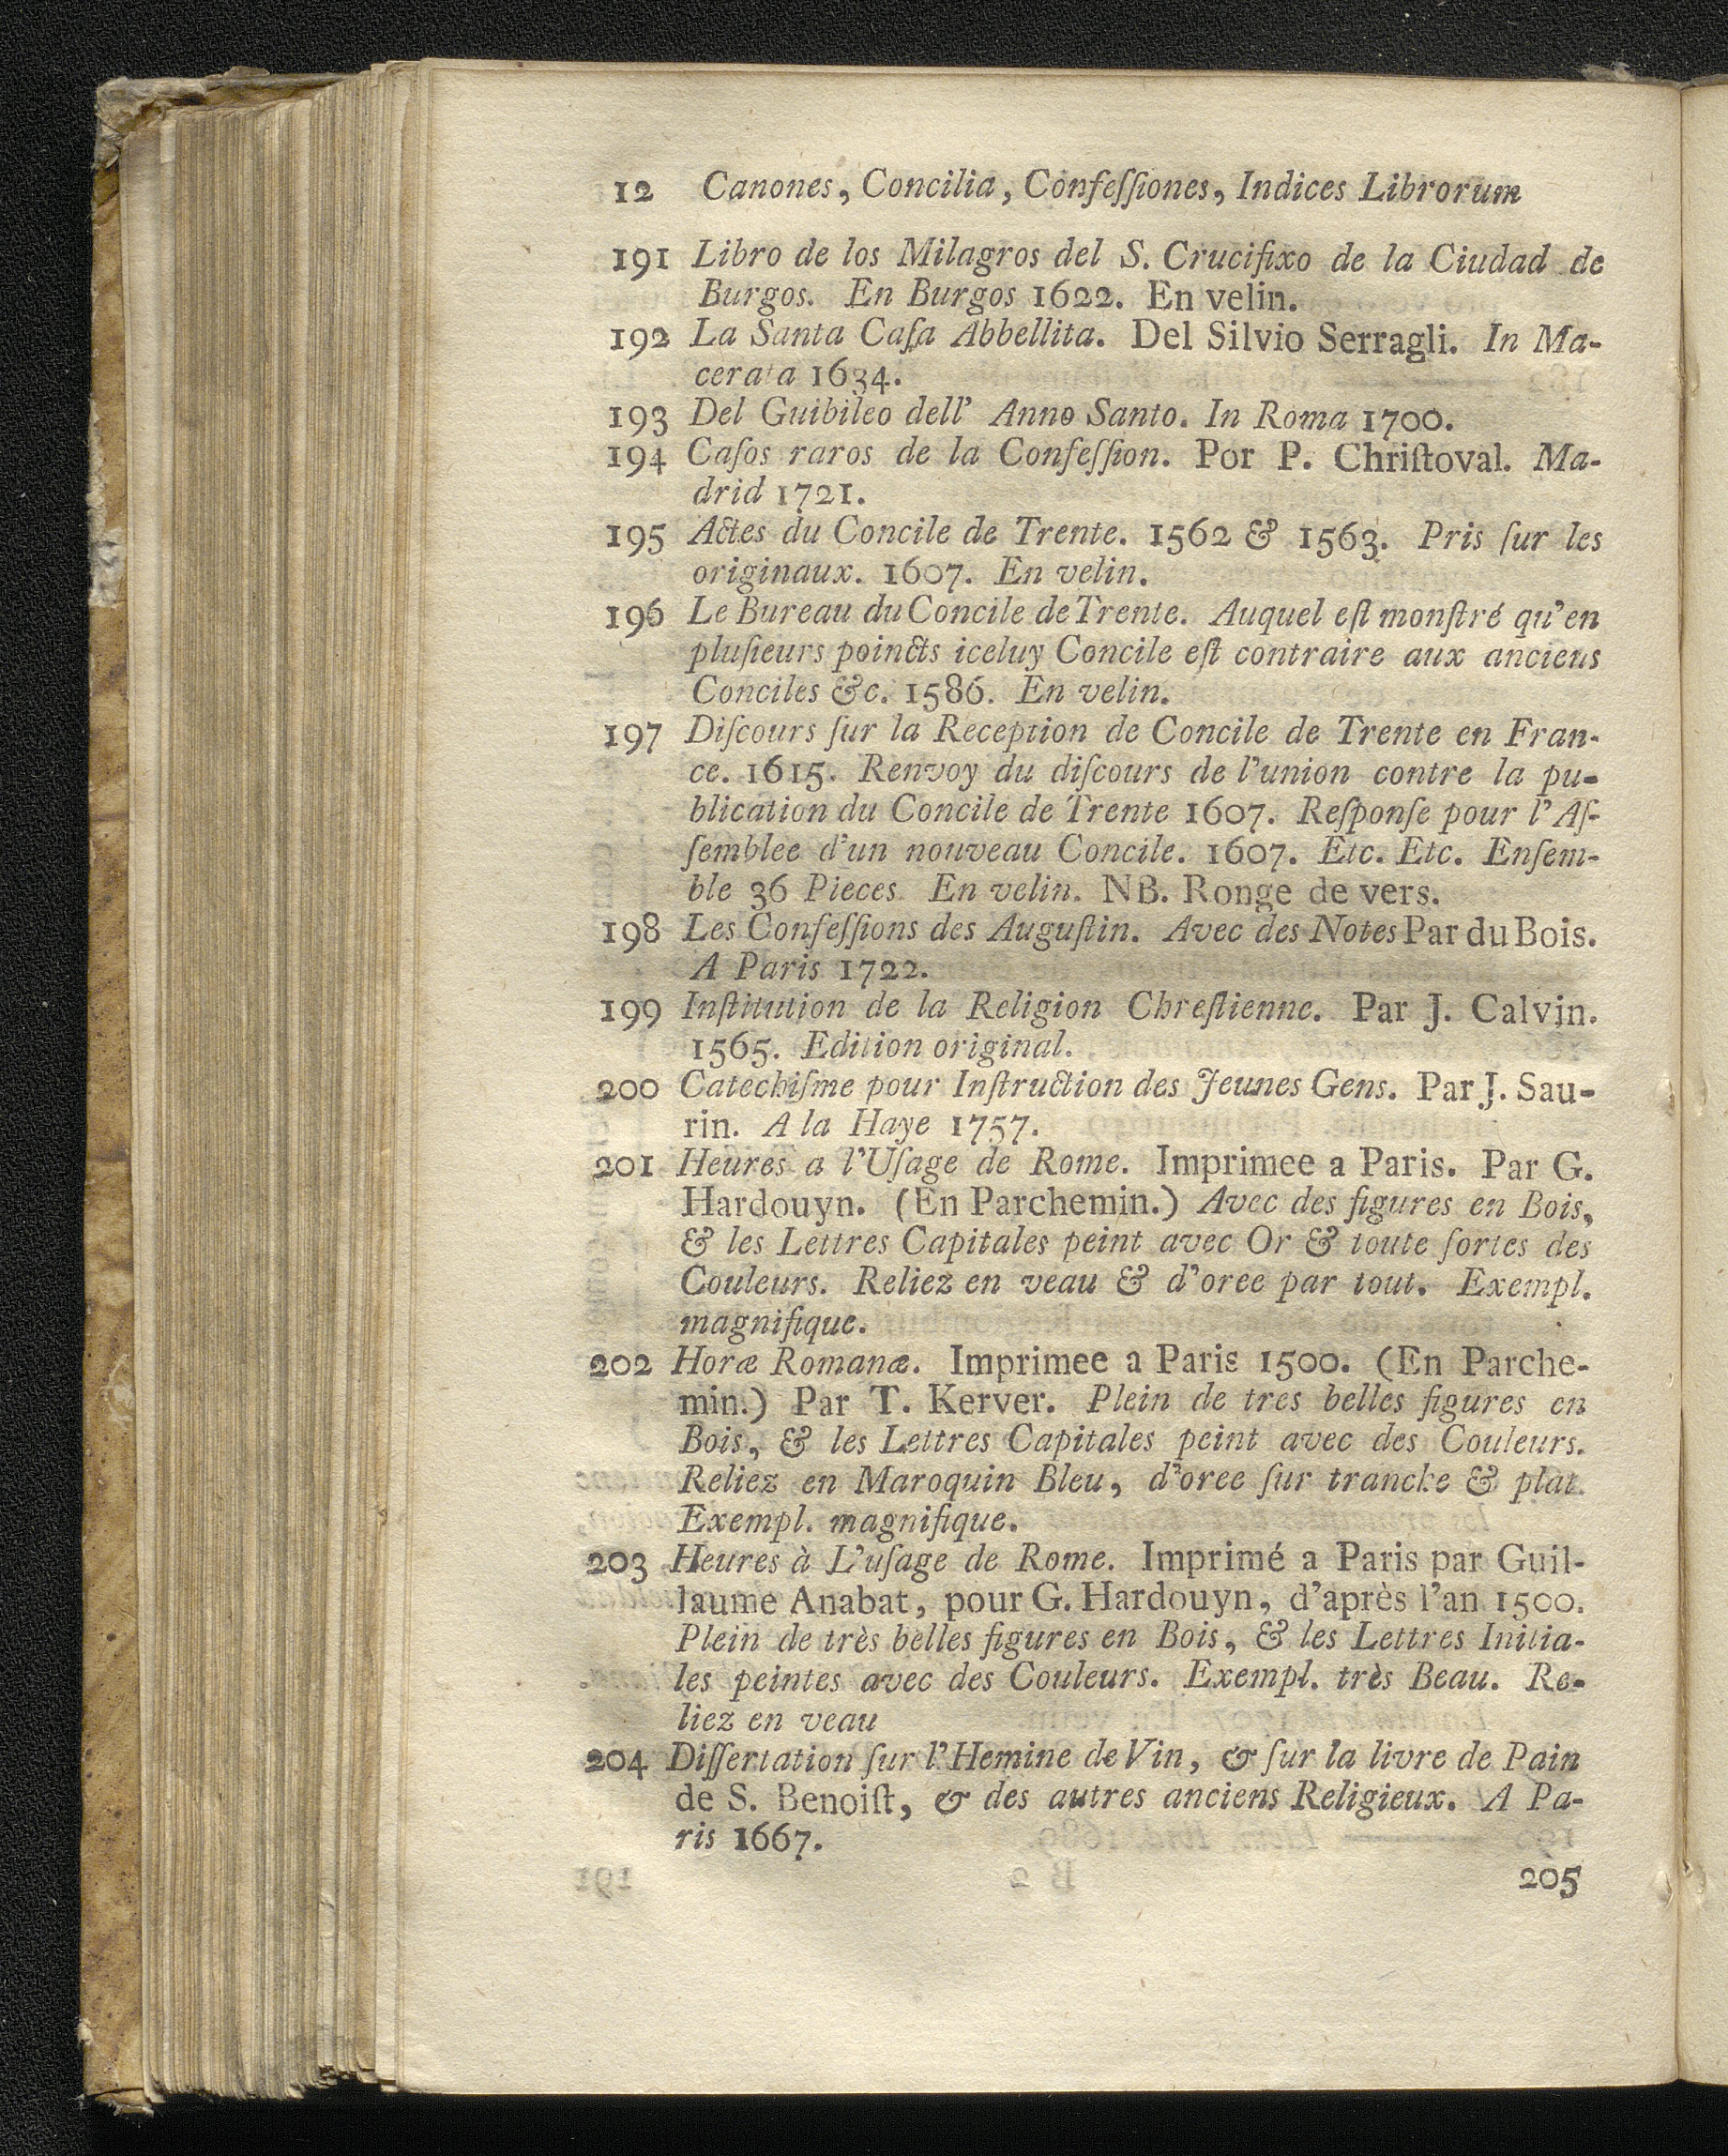 12 Canones, Concilia, Confeſſiones, Indices Librorum
191 Libro de los Milagros del S. Crucifixo de la Ciudad de
Burgos. En Burgos 1622. En velin.
192 La Santa Caſa Abbellita. Del Silvio Serragli. In Ma-
cerata 1634.
193 Del Guibileo dell' Anno Santo. In Roma 1700.
194 Caſos raros de la Confeſſion. Por P. Chriſtoval. Ma-
drid 1721.
195 Actes du Concile de Trente. 1562 & 1563. Pris ſur les
originaux. 1607. En velin.
196 Le Bureau du Concile de Trente. Auquel eſt monſtré qu'en
pluſieurs poincts iceluy Concile eſt contraire aux anciens
Conciles &c. 1586. En velin.
197 Diſcours ſur la Reception de Concile de Trente en Fran-
ce. 1615. Renvoy du diſcours de l'union contre la pu-
blication du Concile de Trente 1607. Reſponſe pour l'Aſ-
ſemblee d'un nouveau Concile. 1607. Etc. Etc. Enſem-
ble 36 Pieces. En velin. NB. Ronge de vers.
198 Les Confeſſions des Auguſtin. Avec des Notes Par du Bois.
A Paris 1722.
199 Inſtitution de la Religion Chreſtienne. Par J. Calvin.
1565. Edition original.
200 Catechiſme pour Inſtruction des Jeunes Gens. Par J. Sau-
rin. A la Haye 1757.
201 Heures a l'Uſage de Rome. Imprimee a Paris. Par G.
Hardouyn. (En Parchemin.) Avec des figures en Bois,
& les Lettres Capitales peint avec Or & toute ſortes des
Couleurs. Reliez en veau & d'oree par tout. Exempl.
magnifique.
202 Horæ Romanæ. Imprimee a Paris 1500. (En Parche-
min.) Par T. Kerver. Plein de tres belles figures en
Bois, & les Lettres Capitales peint avec des Couleurs.
Reliez en Maroquin Bleu, d'oree ſur tranche & plat.
Exempl. magnifique.
203 Heures à L'uſage de Rome. Imprimé a Paris par Guil-
laume Anabat, pour G. Hardouyn, d'après l'an 1500.
Plein de très belles figures en Bois, & les Lettres Initia-
les peintes avec des Couleurs. Exempl. très Beau. Re-
liez en veau
204 Diſſertation ſur l'Hemine de Vin, & ſur la livre de Pain
de S. Benoiſt, & des autres anciens Religieux. A Pa-
ris 1667.
205